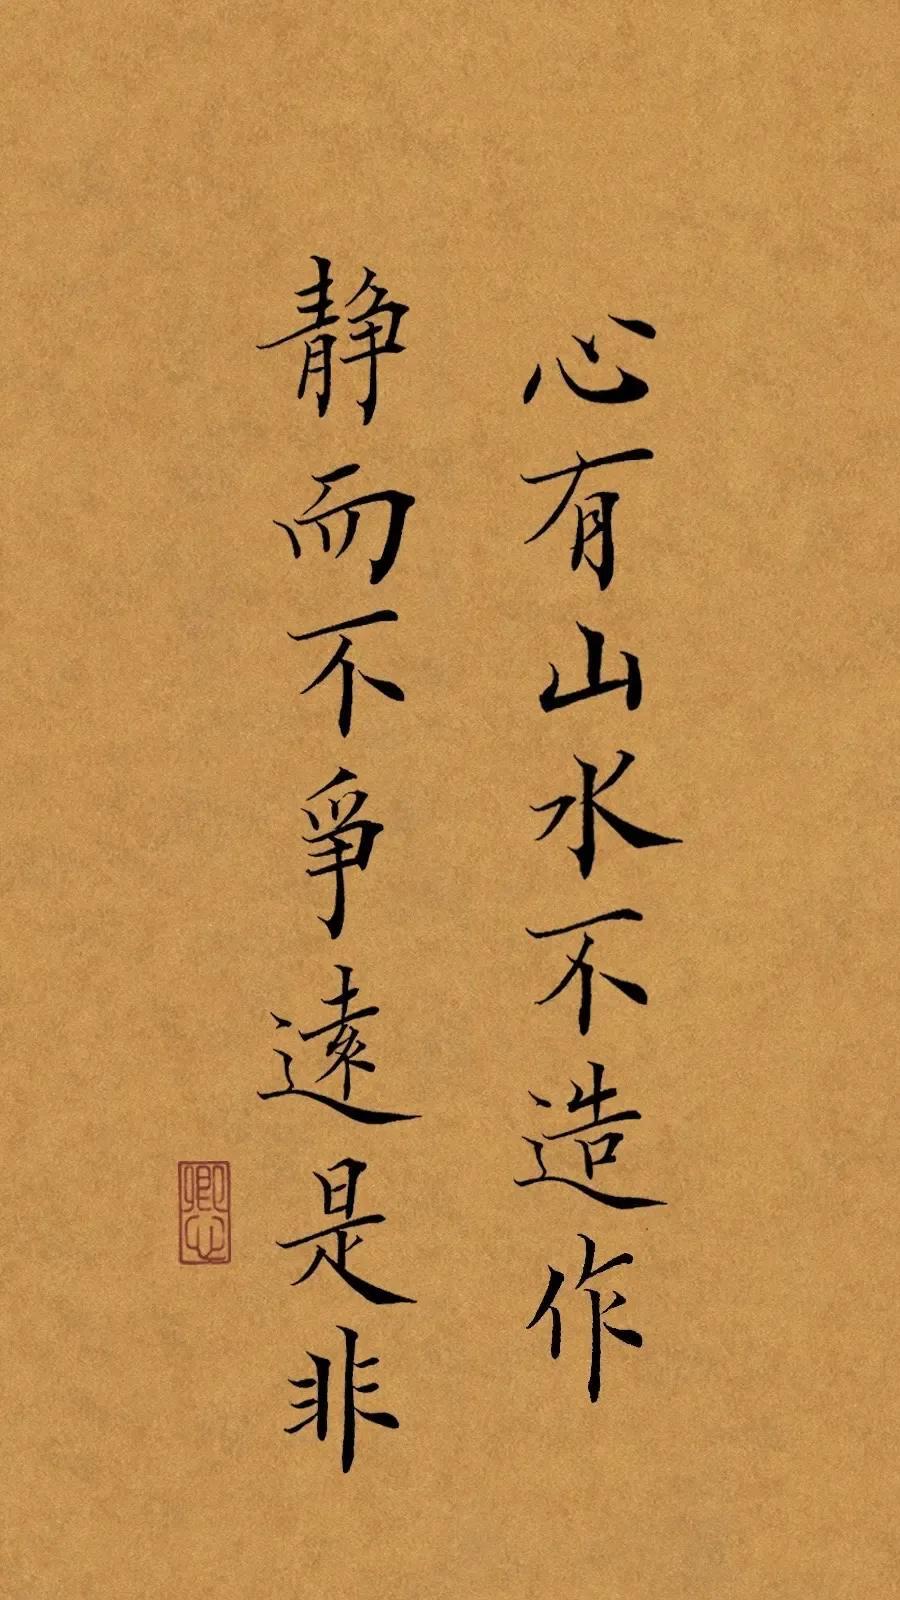 心有山水不造作
静而不爭遠是非
卿心